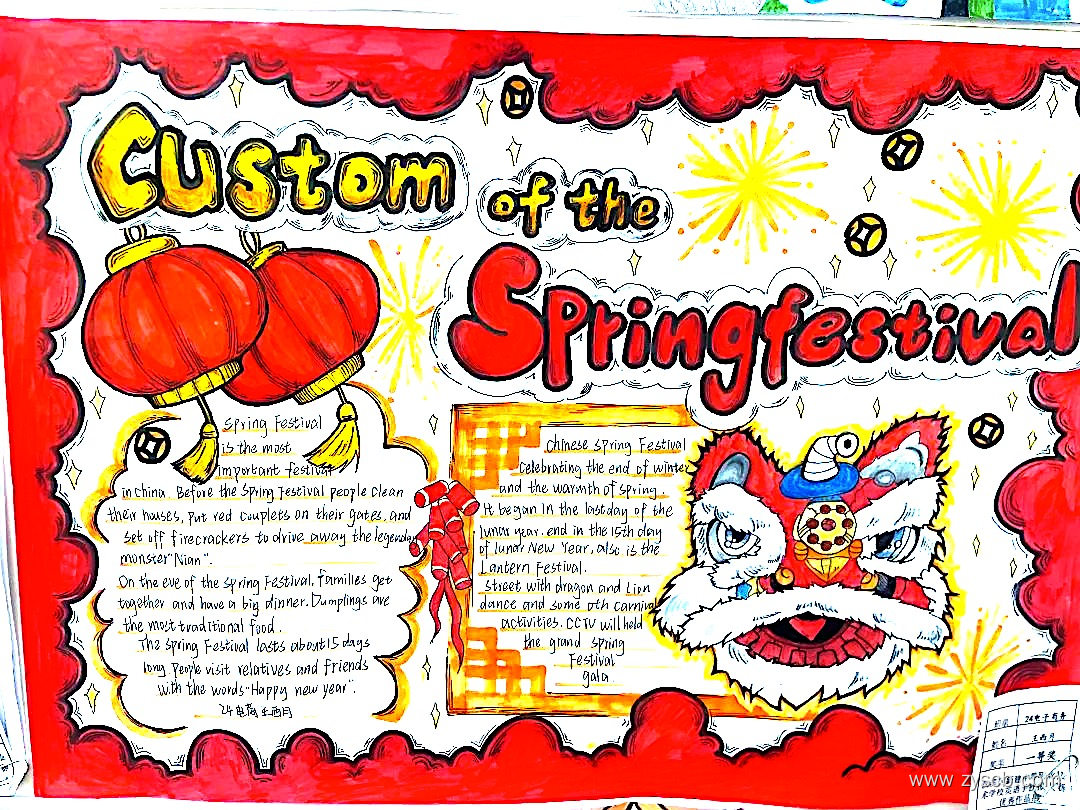 Custom
of the
Springfestival
Spring Festival
is the most
important festival
in China. Before the Spring Festival people clean
their houses, put red couplets on their gates, and
set off firecrackers to drive away the legendary
monster "Nian".
On the eve of the spring Festival, families get
together and have a big dinner. Dumplings are
the most traditional food.
The spring Festival lasts about 15 days
long. People visit relatives and friends
with the words "Happy new year".
Chinese Spring Festival
Celebrating the end of winter
and the warmth of spring.
It began in the last day of the
lunar year. end in the 15th day
of lunar New Year, also is the
Lantern Festival.
street with dragon and Lion
dance and some oth carnival
activities. CCTV will held
the grand spring
Festival
gala.
24电商
24电子商务
一等奖
www.zyscb.com